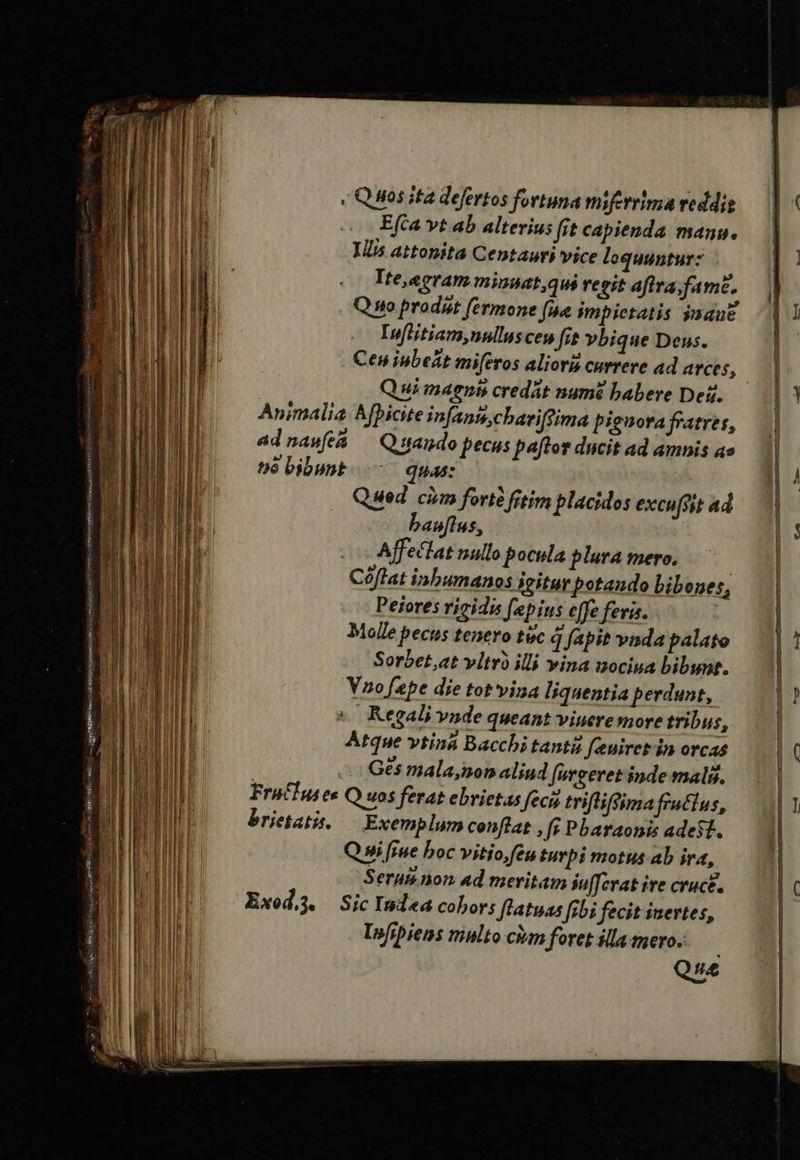 Quos ita deſertos fortuna miſerrima reddit
Eſca vt ab alterius ſit capienda manu.
Illis attonita Centauri vice loquuntur:
Ite, ægram minuat, qui regit aſtra, famē.
Quo prodūt ſermone ſuæ impietatis inanē
Iuſtitiam, nullus ceu ſit vbique Deus.
Ceu iubeāt miſeros aliorū currere ad arces,
Qui magnū credāt numē habere Deū.
Animalia Aſpicite inſanū, chariſſima pignora fratres,
ad nauſeā Quando pecus paſtor ducit ad amnis a-
nō bibunt quas:
Quod cùm fortè ſitim placidos excuſſit ad
hauſtus,
Affectat nullo pocula plura mero.
Cōſtat inhumanos igitur potando bibones,
Peiores rigidis ſæpius eſſe feris.
Molle pecus tenero tūc q̄ ſapit vnda palato
Sorbet, at vltrò illi vina nociua bibunt.
Vno ſæpe die tot vina liquentia perdunt,
Regali vnde queant viuere more tribus,
Atque vtinā Bacchi tantū ſæuiret in orcas
Gēs mala, non aliud ſurgeret inde malū.
Fructus e- Quos ferat ebrietas ſecū triſtiſſima fructus,
brietatis. Exemplum conſtat, ſi Pharaonis adeſt.
Qui ſiue hoc vitio, ſeu turpi motus ab ira,
Seruū non ad meritam iuſſerat ire crucē.
Exod.3. Sic Iudæa cohors ſtatuas ſibi fecit inertes,
Inſipiens multo cùm foret illa mero.
Quæ